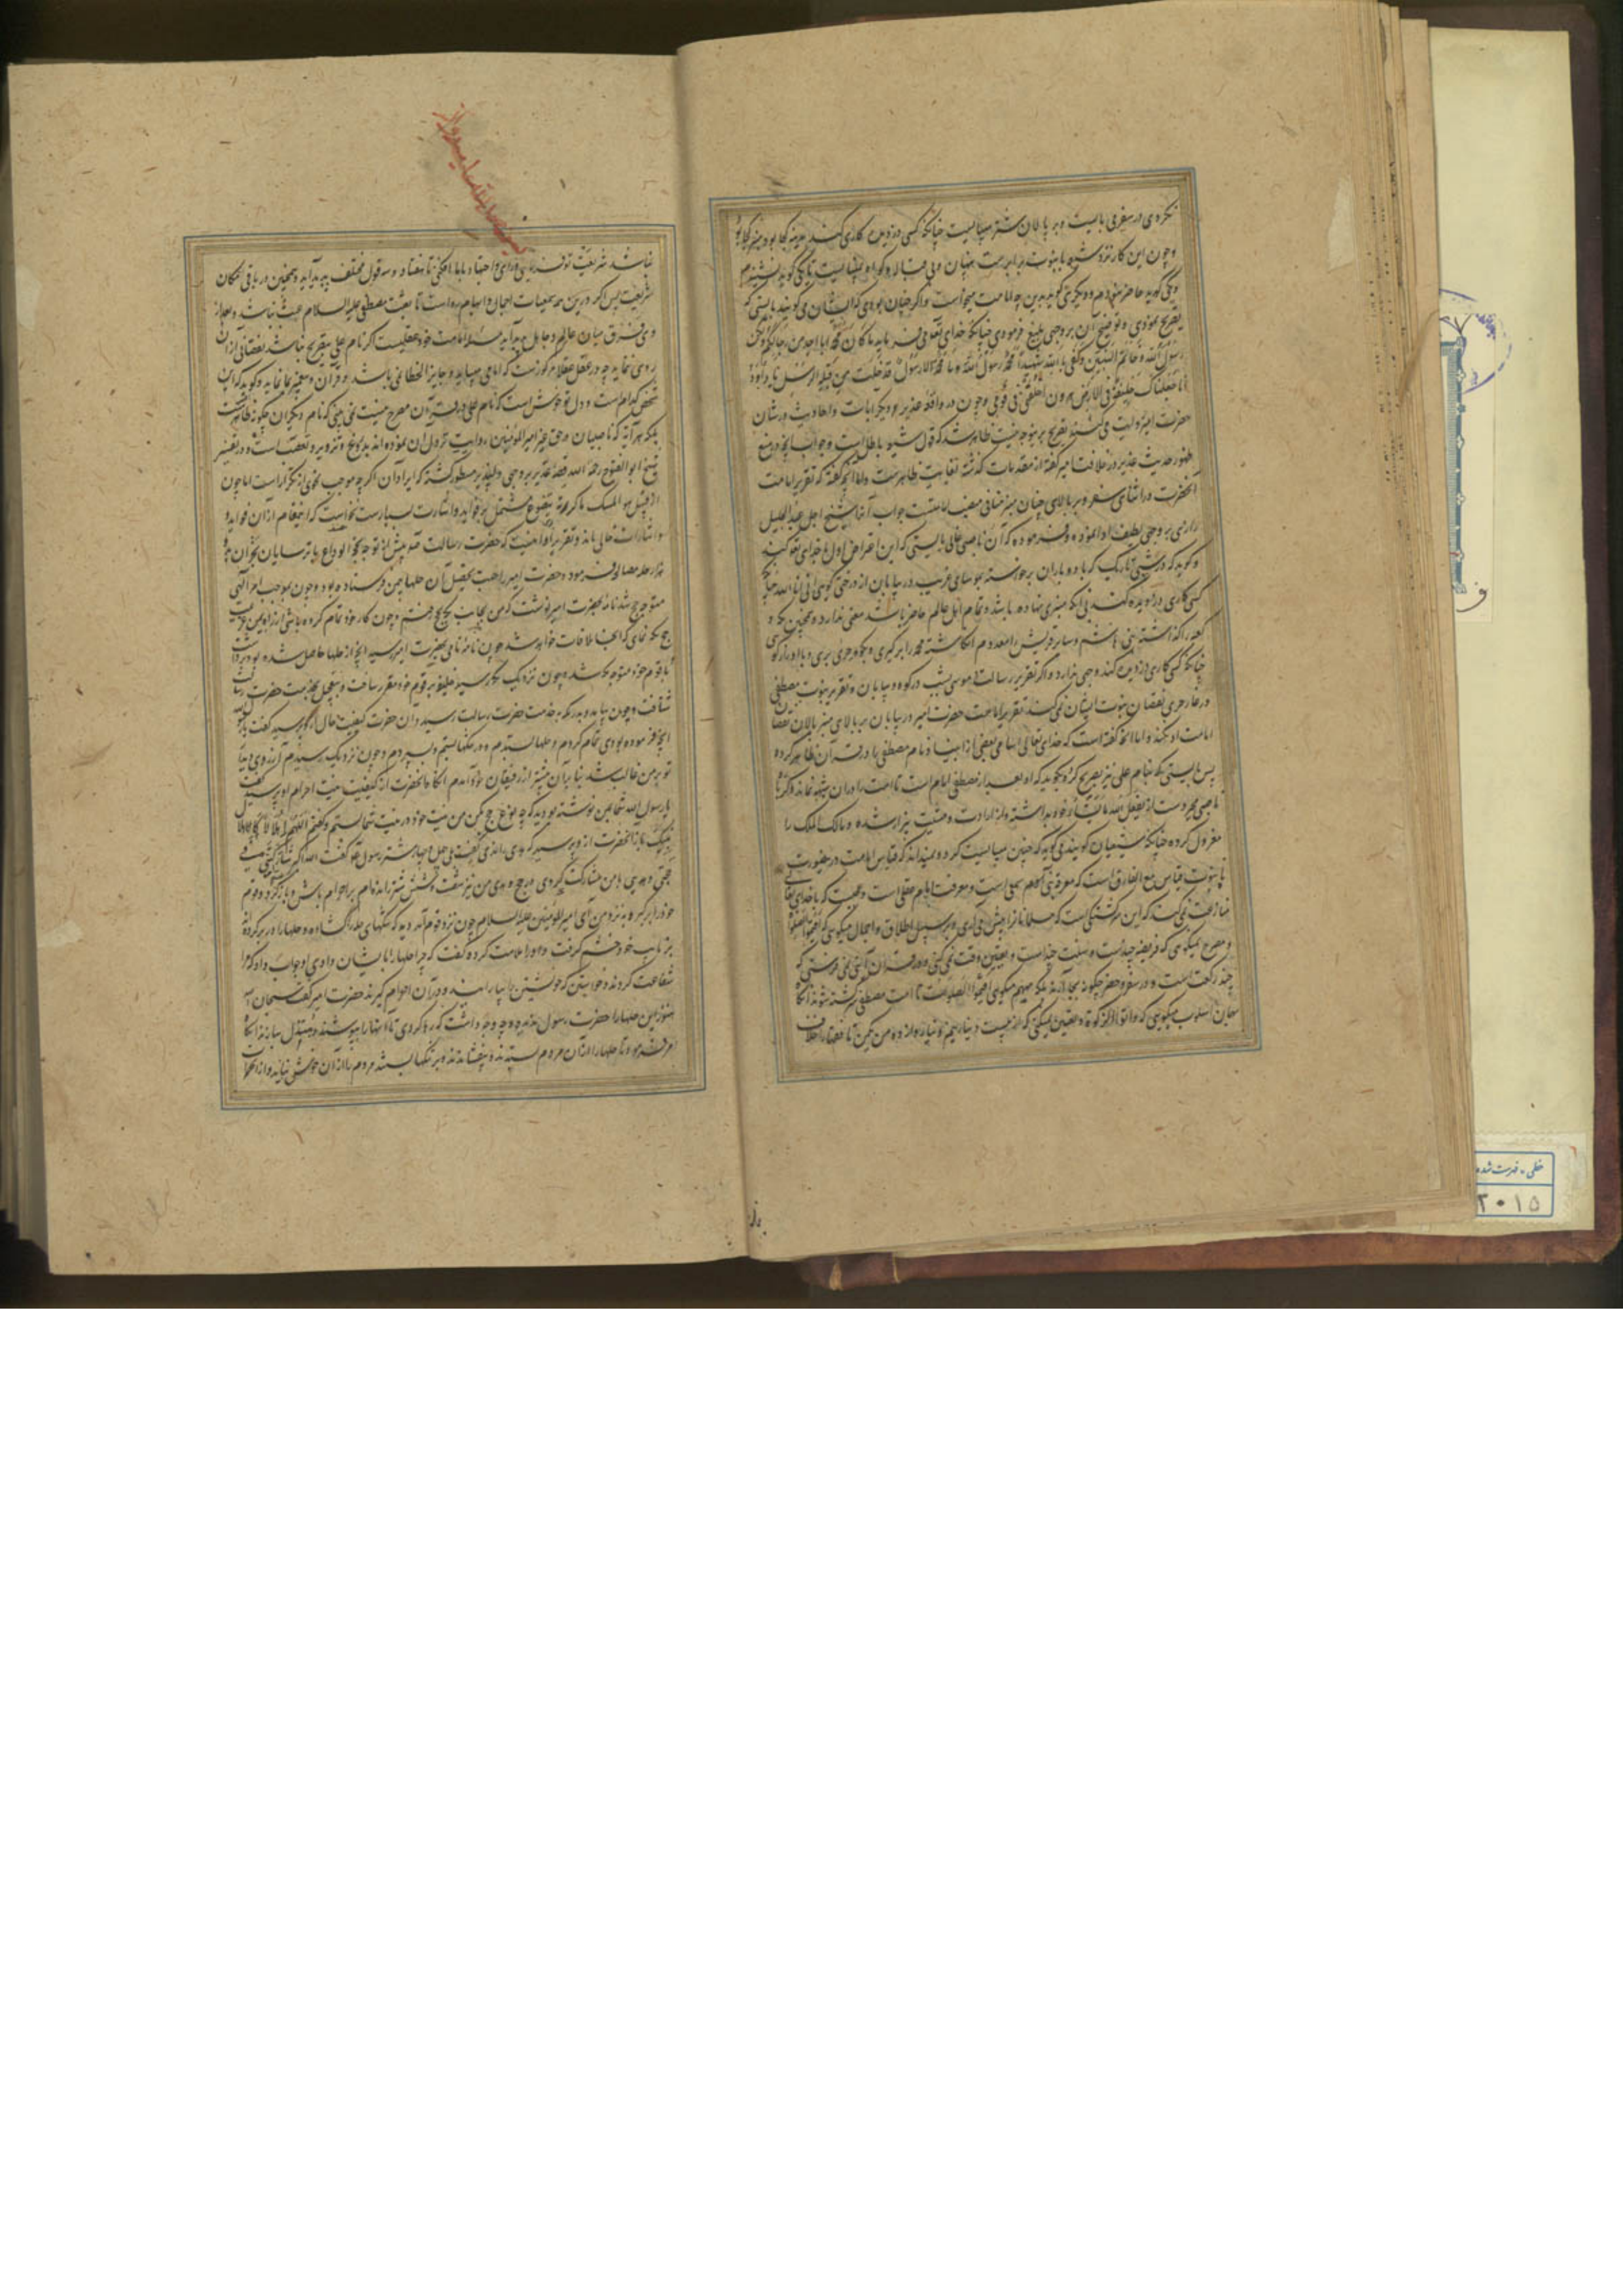 نکردی در سفر می بایست و بر پالان شتر میبایست چنانکه کسی دزدیده کاری کند مدینه کجا بود منبر کجا بود
و چون این کار نزد شیعه با نبوت برابرست پنهان و بی
و یکی گوید حاضر نبودم و دیگری گوید بدین چه امامت میخواست و اگر چنان بودی که ایشان می گویند بایستی که
تصریح نمودی و توضیح آن بر وجهی بلیغ فرمودی چنانکه خدای تعالی فرماید ما کان محمد ابا احد من رجالکم ولکن
رسول الله و خاتم النبیین و کفی بالله شهیدا محمد رسول الله و ما محمد الا رسول قد خلت من قبله الرسل یا داود
انا جعلناک خلیفة فی الارض هرون اخلفنی فی قومی و چون در واقعه غدیر و دیگر آیات و احادیث در شان
حضرت امیر ظاهر شد که قول شیعه باطل است و جواب آنچه در منع
ظهور حدیث غدیر در خلافت امیر گفته از مقدمات گذشته بغایت ظاهرست و اما آنچه گفته که تقریر امامت
آنحضرت در اثنای سفر و بر بالای چنان منبر منافی منصب امامتست جواب آنرا شیخ اجل عبد الجلیل
رازی بر وجهی لطیف ادا نموده و فرموده که آن ناصبی غالی بایستی که این اعتراض اول با خدای تعالی کند
و گوید که در شبی تاریک که باد و باران برخواسته بود در بیابان از درختی گوئی انی انا الله چنانکه
کسی کاری دزدیده کند بی آنکه منبری نهاده باشد و تمام اهل عالم حاضر باشند معنی ندارد و همچنین مکه و
کعبه را گذاشته بنی هاشم و سایر قریش را معدوم انگاشته محمد را برگیری و بکوه حری بری و با او راز گوئی
چنانکه کسی کاری دزدیده کند وجهی ندارد و اگر تقریر رسالت موسی بشب در کوه و بیابان و تقریر نبوت مصطفی
در غار حری نقصان نبوت ایشان نمی کند تقریر امامت حضرت امیر در بیابان بر بالای منبر پالان نقصان
امامت او نکند و اما آنچه گفته است که خدای تعالی اسامی بعضی از انبیا و نام مصطفی را در قرآن ظاهر کرده
پس بایستی که بنام علی نیز تصریح کردی و بگوید که او بعد از مصطفی امام است تا امت را در آن شبهه نماند و اگر نه
ناصبی از یفعل الله ما یشاء برداشته و از ارادت و مشیت بیزار شده و مالک الملک را
معزول کرده چنانکه شیعیان گویند می گوید که چنین میبایست کرد و نمیداند که قیاس امامت در نصورت
با نبوت قیاس مع الفارق است که معرفت نبی سمعی است و معرفت امام عقلی است و عجبست که با خدای تعالی
منازعت نمی کند که این سرگشتگی است که مسلمانان را پیش می آری و بر سبیل اطلاق و اجمال میگوئی که اقیموا الصلوة
و مصرح نمیگوئی که فریضه چندست و سنت چندست و تعیین وقت نمی کنی و در قرآن آیتی نمی فرستی که
چند رکعت است و در سفر و حضر چگونه بجا آرند بلکه مبهم میگوئی اقیموا الصلوة تا امت مصطفی سرگشته شوند
همان اسلوب میگوئی که و اتوا الزکوة و تعیین نمیکنی که از بیست دینار نیم دینار و از ده من یکمن تا فقها را خلاف
نباشد شریعت تو فرمائی و رای و اجتهاد ما با افکنی تا هفتاد و سه قول مختلف پدید آید و همچنین در باقی ارکان
شریعت پس اگر در این همه سمعیات اجمال و ابهام رواست تا بعثت مصطفی علیه السلام عبث نباشد و
فرق میان عالم و جاهل پدید آید مسئله امامت خود عقلیست اگر نام علی بتصریح نباشد نقصانی از آن
روی ننماید چه در عقل عقلا مرکوزست که امامی میباید و جایز الخطا نمی باشد و قرآن و پیغمبر بما نماید و گوید که آن
شخص کدام است و دل تو خوش است که نام علی در قرآن مصرح نیست نمی بینی که نام دیگران چگونه ظاهرست
بلکه هر آیه که ناصبیان در حق غیر امیر المؤمنین روایت نزول آن نموده اند بدروغ و تزویر و تعصب است و در تفسیر
شیخ ابو الفتوح رحمه الله قصه غدیر بر وجهی دلپذیر مسطور گشته که ایراد آن اگر چه موجب نحوی از تکرار است اما چون
از قبیل هو المسک ما کررته یتضوع مشتمل بر فواید و اشارت بسیارست نخواست که این مقام از آن فواید و
اشارات خالی ماند و تقریر آن اینست که حضرت رسالت صلعم پیش از توجه بحجة الوداع با ترسایان نجران
هزار حله مصالحه فرمود و حضرت امیر را جهت تحصیل آن حلها بیمن فرستاده بود و چون بموجب امر الهی
متوجه حج شد نامه بحضرت امیر نوشت که من بجانب حج رفتم و چون کار خود تمام کرده باشی از راه یمن عزیمت
حج بکه نمای که آنجا ملاقات خواهد شد چون نامه نامی بحضرت امیر رسید آنچه از حلها حاصل شده بود برداشت
با قوم خود متوجه مکه شد و چون نزدیک مکه رسید خلیفه بر قوم خود مقرر ساخت و بتعجیل بخدمت حضرت رسالت
شتافت و چون بخدمت حضرت رسالت رسید و آن حضرت کیفیت حال از او پرسید گفت یا رسول الله
آنچه فرموده بودی تمام کردم و حلها بستدم و در تنگها بستم و سپردم و چون نزدیک رسیدم آرزوی دیدار
تو بر من غالب شد بنا بر آن پیشتر از رفیقان خود آمدم آنگاه آنحضرت از کیفیت نیت احرام او پرسید گفت
یا رسول الله شما بمن نوشته بودید که چه نوع حج کن من نیت خود در نیت شما بستم و گفتم اللهم اهلالا کاهلال
نبیک باز آنحضرت از او پرسید که هدی رانده گفت بلی چهار شتر رسول صلعم گفت الله اکبر
حجی و هدیی با من مشارکت کردی در حج و هدی من نیز شصت و شش شتر رانده ام بر احرام باش و باز گرد و قوم
خود را برگیر و به نزد من آی امیر المؤمنین علیه السلام چون نزد قوم آمد دید که تنگهای حله را گشاده و حلها را در بر کرده
بر نایب خود خشم گرفت و او را ملامت کرده گفت که چرا حلها را بایشان دادی او جواب داد که مرا
شفاعت کردند و خواستند که خویشتن را بیارایند و در آن احرام گیرند حضرت امیر گفت سبحان الله
هنوز این حلها را حضرت رسول ندیده چه وجه داشت که رها کردی تا اینها را بپوشند و مبتذل سازند آنگاه
امر فرمود تا حلها را از آن مردم بستدند و بیفشاندند و بر تنگها بستند مردم را از آن خوش نیامد و از
خطی - فهرست شده
۲۰۱۵